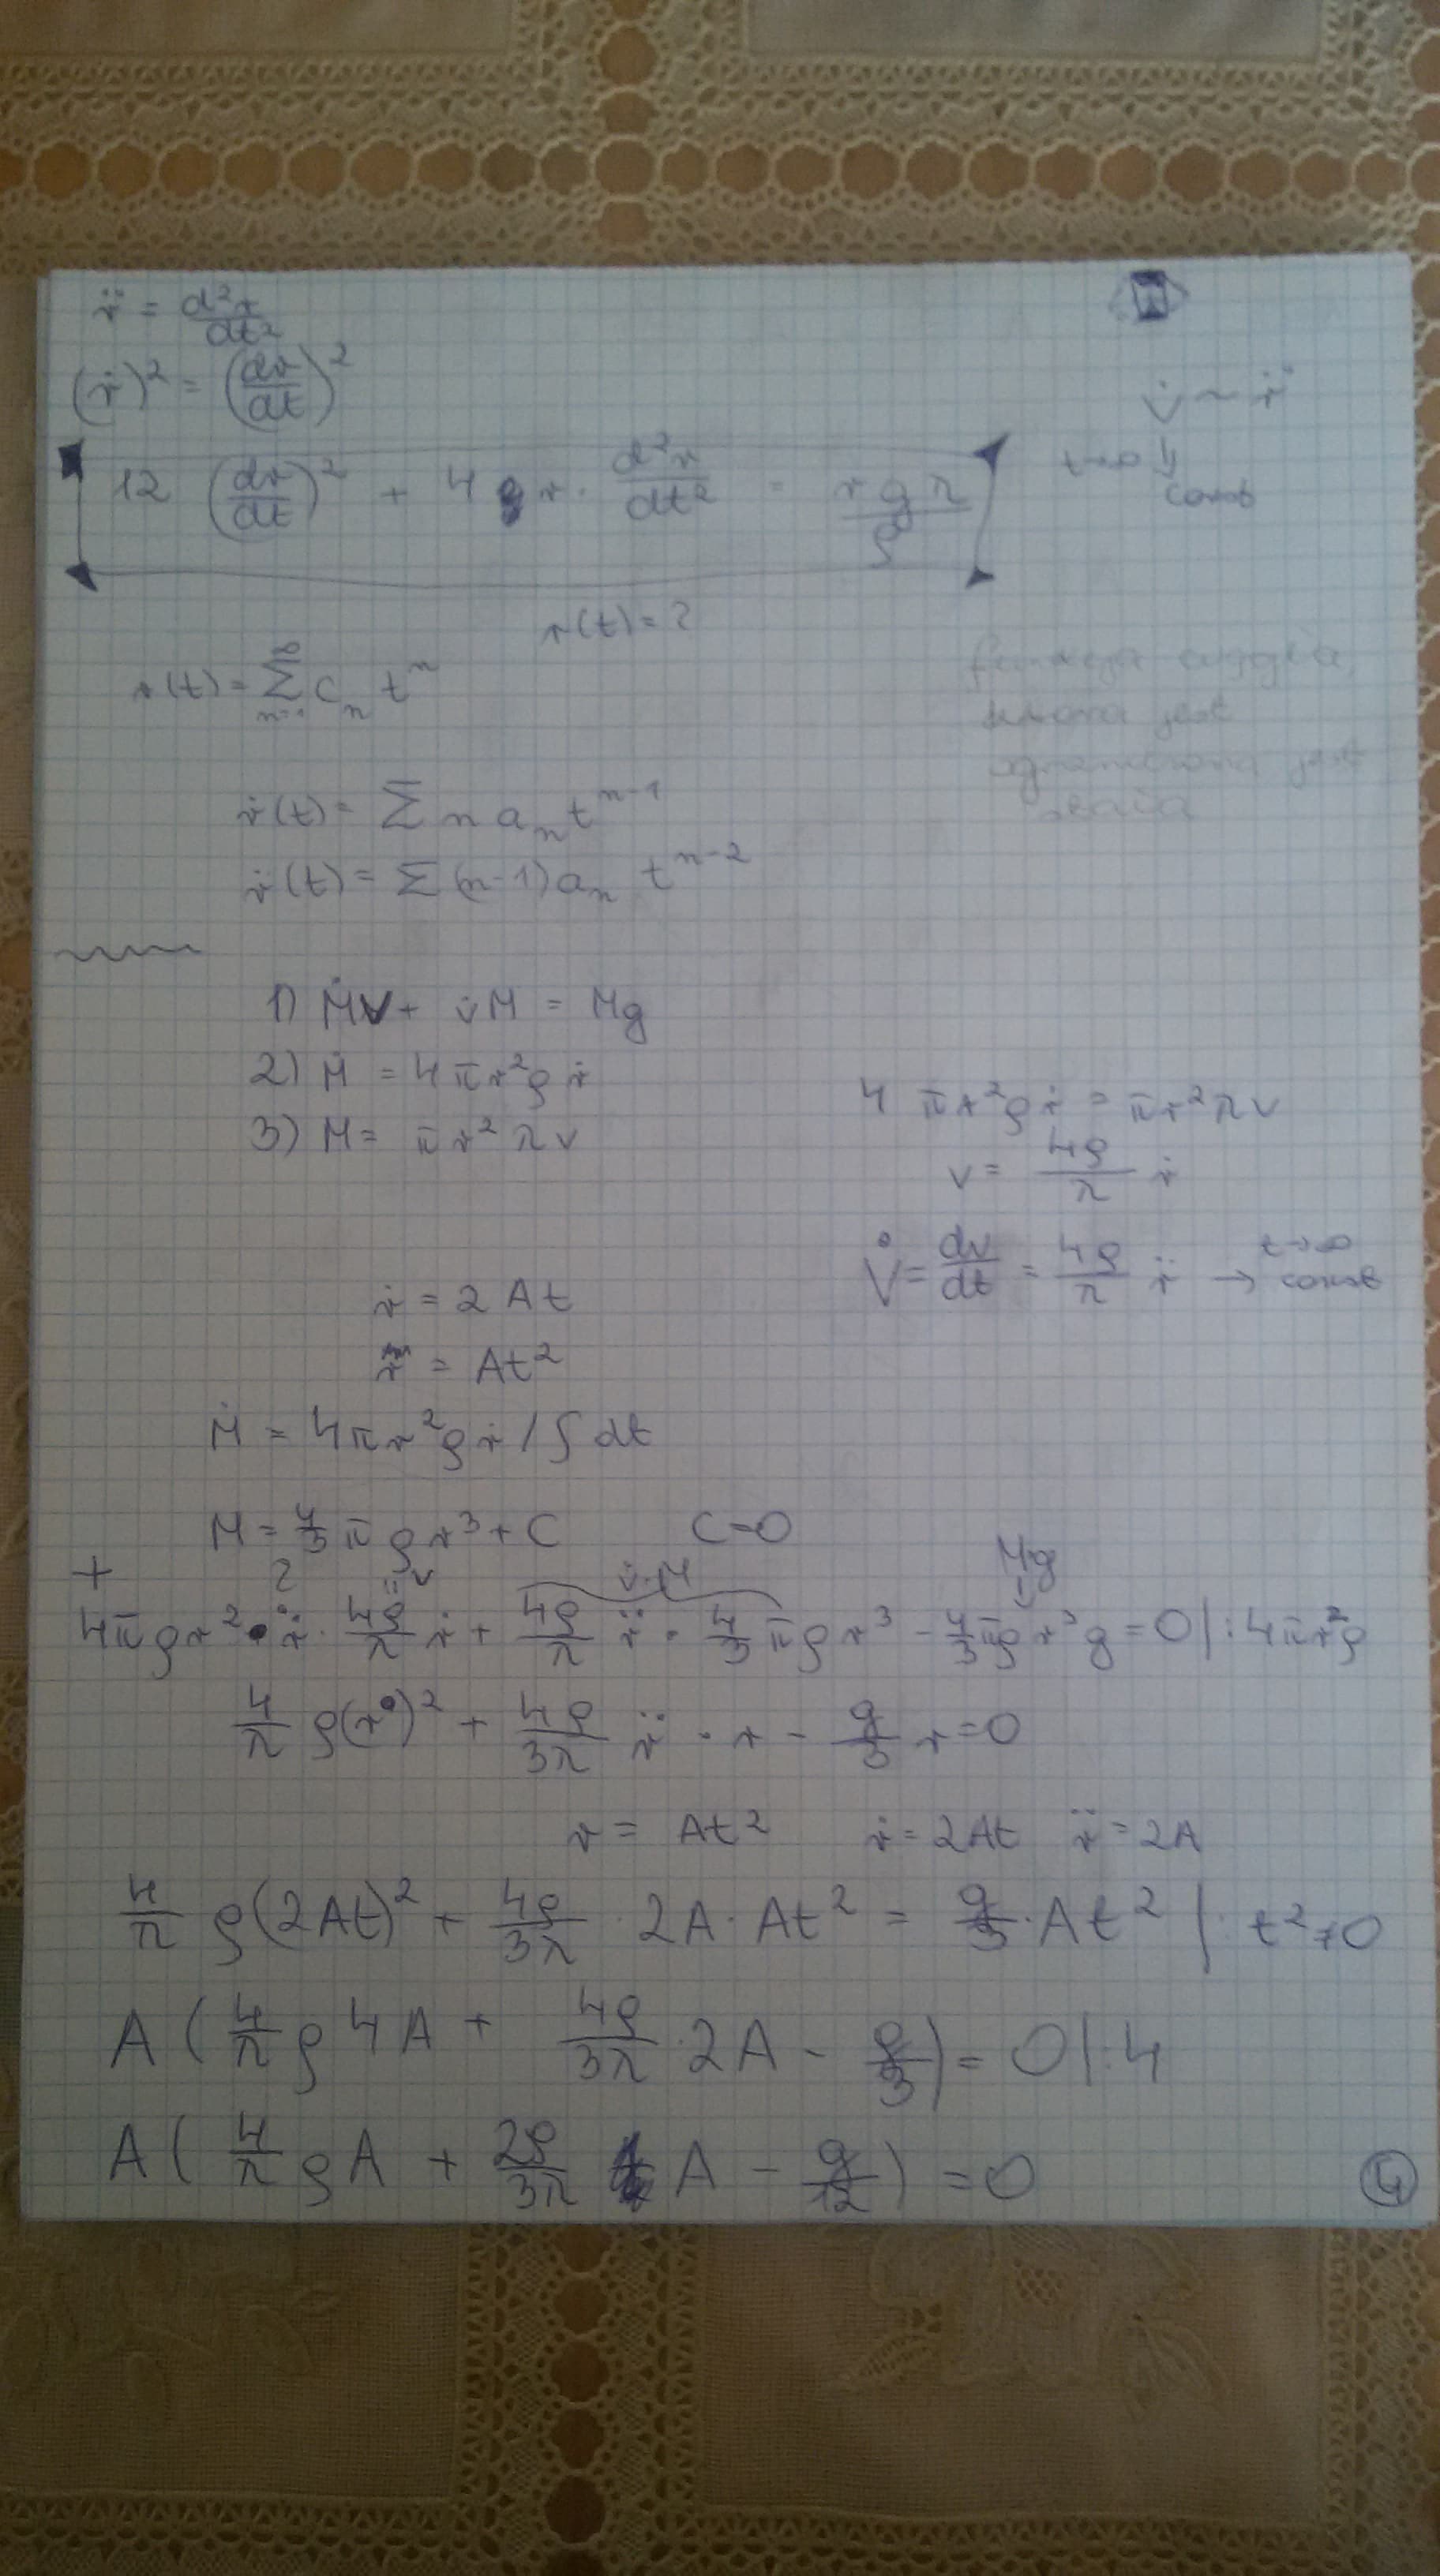 r̈ = d²r/dt²
(ṙ)² = (dr/dt)²
v̇ ~ r̈
t→∞ ⇓
const
12 (dr/dt)² + 4 r · d²r/dt² = r g λ/ρ
r(t) = ?
r(t) = ∑ cₙ tⁿ
jest
jest
ṙ(t) = ∑ n aₙ tⁿ⁻¹
ṙ(t) = ∑ (n-1) aₙ tⁿ⁻²
1) Ṁv + v̇M = Mg
2) Ṁ = 4πr²ρṙ
3) Ṁ = πr²λv
4πr²ρṙ = πr²λv
v = 4ρ/λ ṙ
v̇ = dv/dt = 4ρ/λ r̈ → t→∞ const
ṙ = 2At
r = At²
Ṁ = 4πr²ρṙ / ∫dt
M = 4/3 πρr³ + C C=0
+ ? = v v̇·M Mg
4πρr² · ṙ · 4ρ/λ ṙ + 4ρ/λ r̈ · 4/3 πρr³ - 4/3 πρr³g = 0 |:4πr²ρ
4/λ ρ(ṙ)² + 4ρ/3λ r̈ · r - g/3 r = 0
r = At² ṙ = 2At r̈ = 2A
4/λ ρ(2At)² + 4ρ/3λ · 2A · At² = g/3 · At² |: t² ≠ 0
A (4/λ ρ 4A + 4ρ/3λ · 2A - g/3) = 0 |:4
A (4/λ ρA + 2ρ/3λ A - g/12) = 0
4